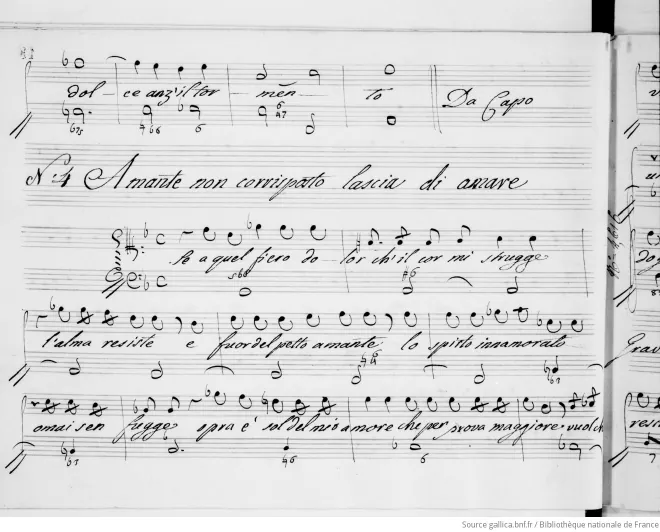 dol - ce anz' il tor - men - to Da Capo
N.º 4 Amante non corrisposto lascia di amare
Se a quel fiero do - lor ch'il cor mi strugge
l'alma resiste e fuor del petto amante lo spirto innamorato
omai sen fugge opra è sol del mio amore che per prova maggiore vuol ch
Source gallica.bnf.fr / Bibliothèque nationale de France